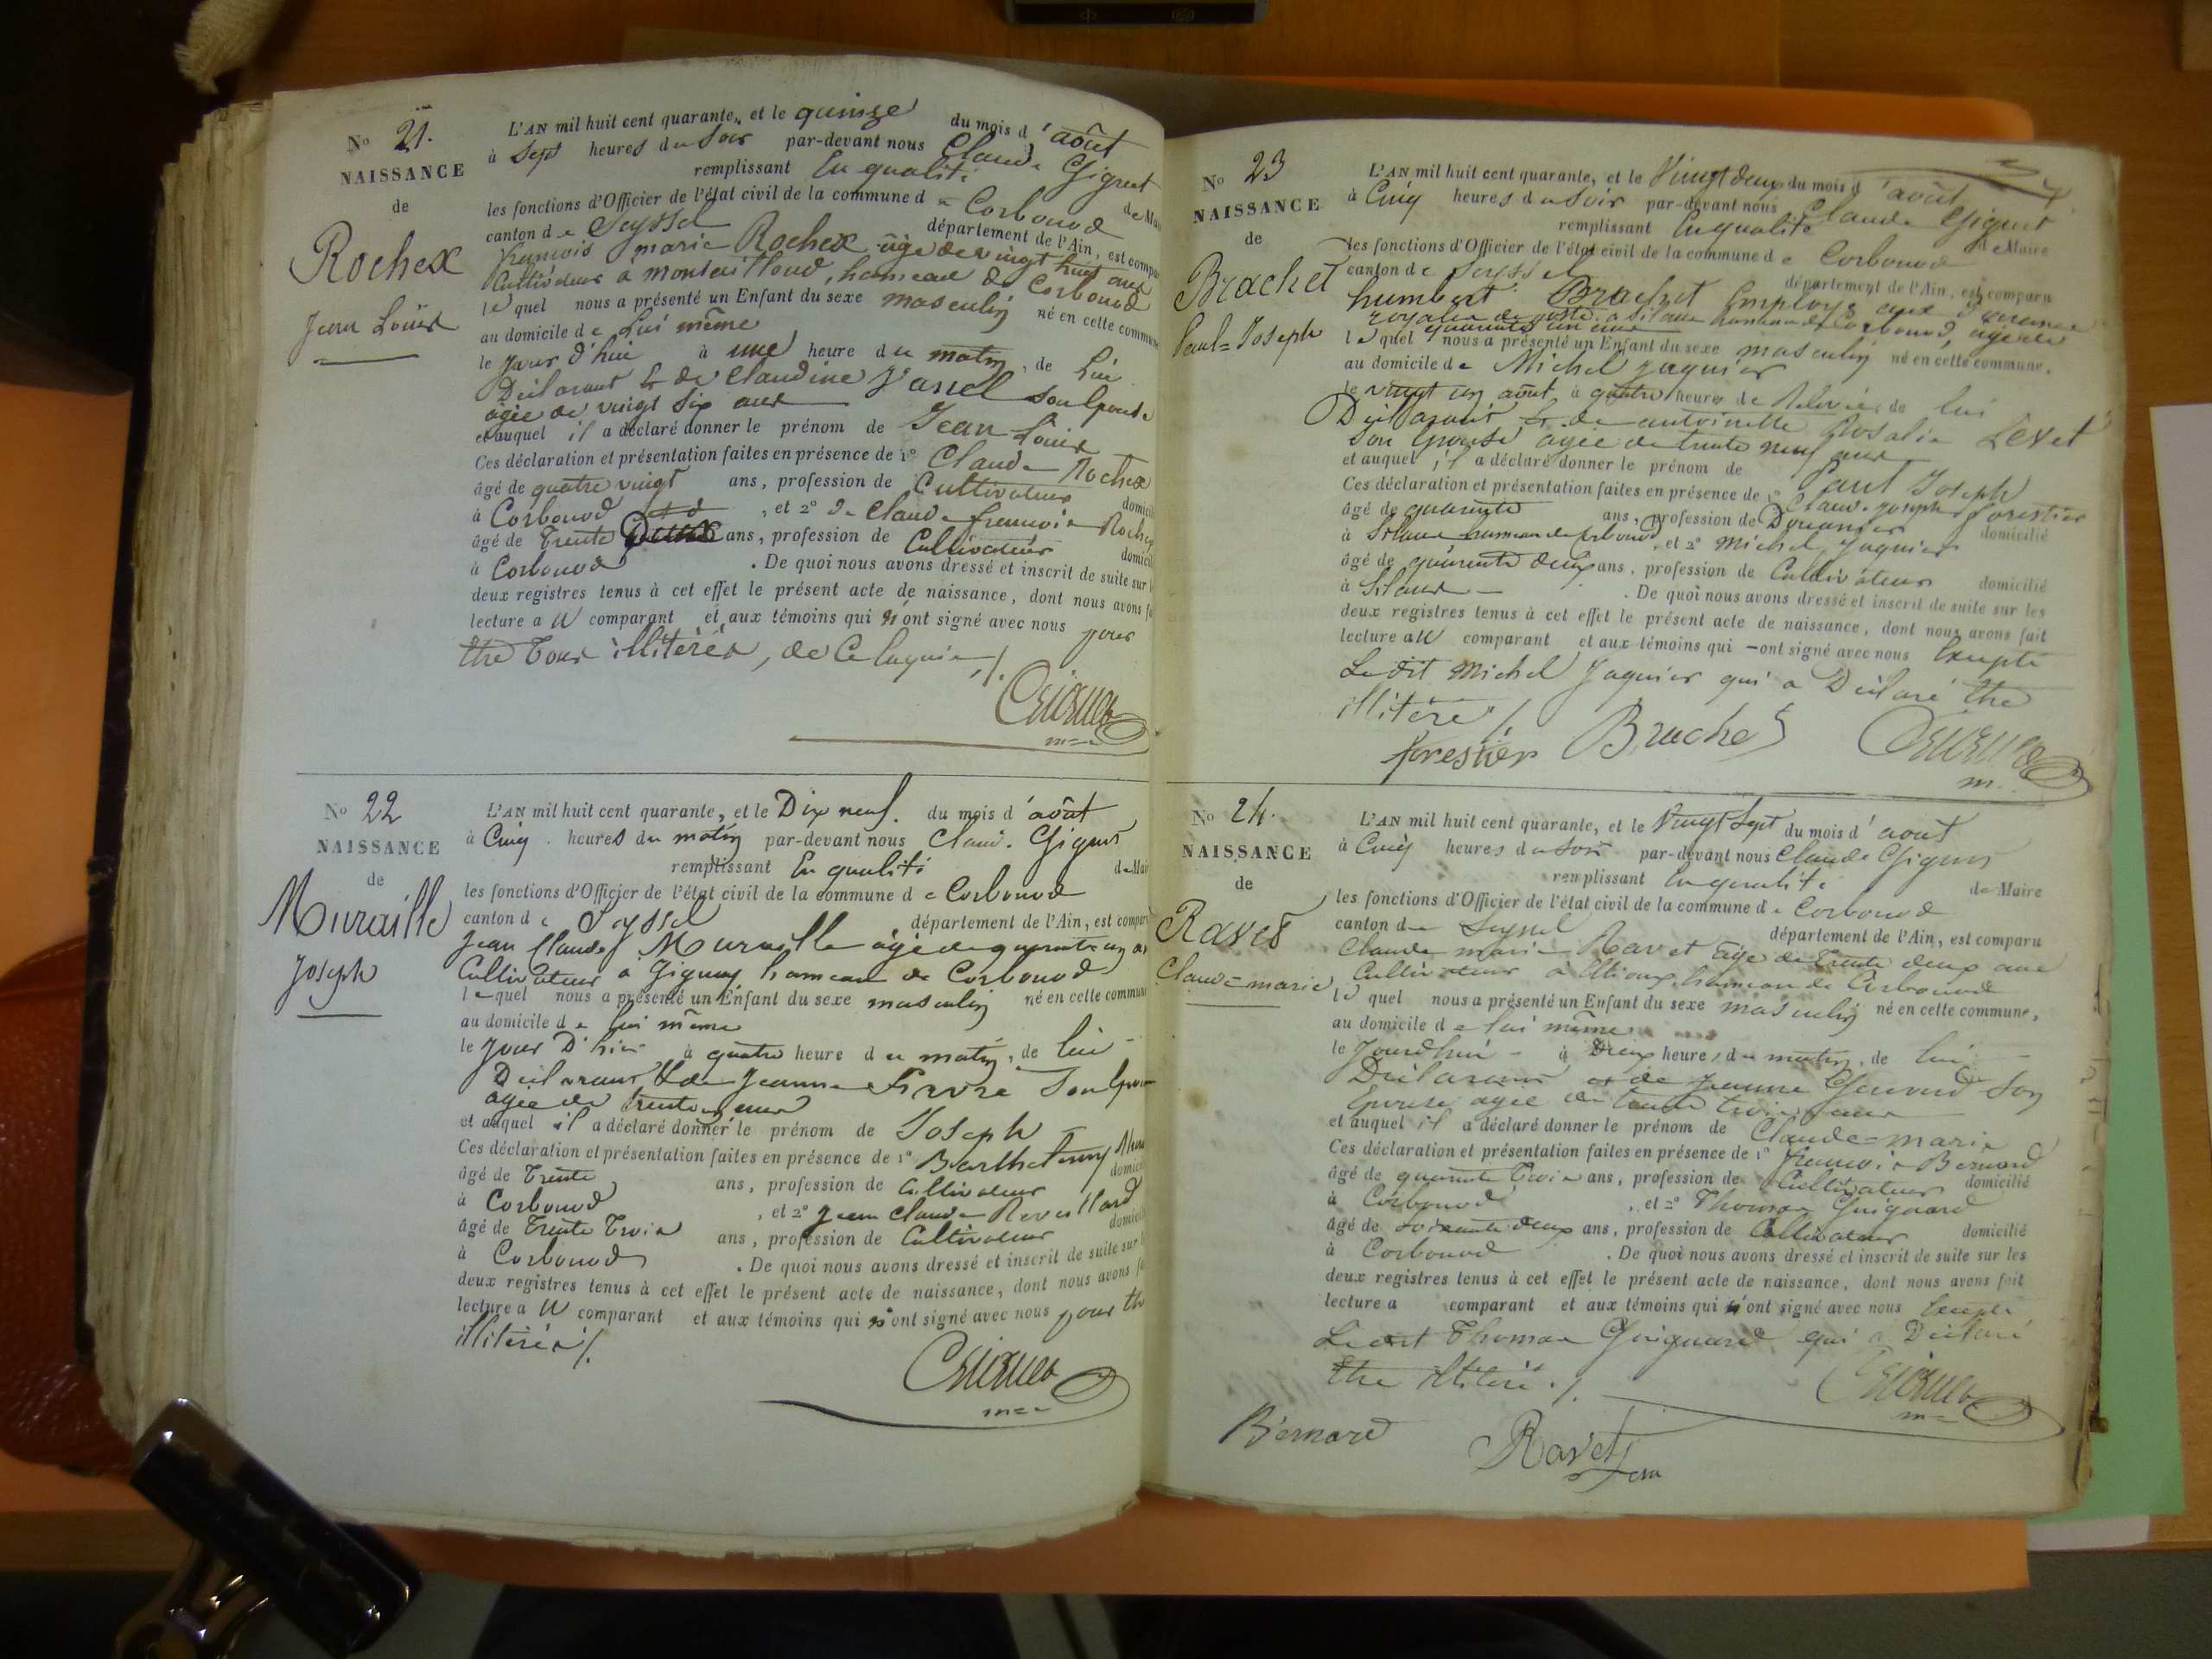 No 21.
NAISSANCE
de
Rochex
Jean Louis
L'AN mil huit cent quarante, et le quinze du mois d'août
à Sept heures du Soir par-devant nous Claude Gignet
remplissant En qualité de Mai
les fonctions d'Officier de l'état civil de la commune de Corbonod
canton de Seyssel département de l'Ain, est compa
françois marie Rochex âgé de vingt huit ans
Cultivateur a montailloud, hameau de Corbonod
lequel nous a présenté un Enfant du sexe masculin né en cette commune
au domicile de Lui même
le jour d'hui à une heure du matin, de Lui
Déclarant & de Claudine Vanel son épouse
âgée de vingt six ans
et auquel il a déclaré donner le prénom de Jean Louis
Ces déclaration et présentation faites en présence de 1o Claude Rochex
âgé de quatre vingt ans, profession de Cultivateur domicil
à Corbonod, et 2o de Claude françois Rochex
âgé de Trente Deux ans, profession de Cultivateur domicil
à Corbonod. De quoi nous avons dressé et inscrit de suite sur l
deux registres tenus à cet effet le présent acte de naissance, dont nous avons fa
lecture au comparant et aux témoins qui n'ont signé avec nous pour
être Tous illitérés, de ce enquis ./.
No 22
NAISSANCE
de
Muraille
Joseph
L'AN mil huit cent quarante, et le Dix neuf. du mois d'août
à Cinq heures du matin par-devant nous Claude Gignet
remplissant En qualité de Mai
les fonctions d'Officier de l'état civil de la commune de Corbonod
canton de Seyssel département de l'Ain, est compar
Jean Claude Muraille âgé de quarante un an
Cultivateur à Gignez hameau de Corbonod
lequel nous a présenté un Enfant du sexe masculin né en cette commune
au domicile de lui même
le jour D'hier à quatre heure du matin, de lui
Déclarant & de Jeanne Son épouse
âgée de trente un ans
et auquel il a déclaré donner le prénom de Joseph
Ces déclaration et présentation faites en présence de 1o Barthelemy
âgé de Trente ans, profession de Cultivateur domicil
à Corbonod, et 2o Jean Claude Reveillard
âgé de Trente Trois ans, profession de Cultivateur domicil
à Corbonod. De quoi nous avons dressé et inscrit de suite sur l
deux registres tenus à cet effet le présent acte de naissance, dont nous avons fa
lecture au comparant et aux témoins qui n'ont signé avec nous pour être
illitérés ./.
No 23
NAISSANCE
de
Brachet
Paul=Joseph
L'AN mil huit cent quarante, et le Vingt deux du mois d'août
à Cinq heures du Soir par-devant nous Claude Gignet
remplissant En qualité de Maire
les fonctions d'Officier de l'état civil de la commune de Corbonod
canton de Seyssel département de l'Ain, est comparu
humbert Brachet Employé aux Douanes
royales de poste a Silans hameau de Corbonod, âgé de
quarante un ans
lequel nous a présenté un Enfant du sexe masculin né en cette commune.
au domicile de Michel Jaquier
le vingt un août à quatre heures de Relevée, de lui
Déclarant & de antoinette Rosalie Levet
Son épouse âgée de trente neuf ans
et auquel il a déclaré donner le prénom de Paul Joseph
Ces déclaration et présentation faites en présence de 1o Claude joseph forestier
âgé de quarante ans, profession de Douanier domicilié
à Silans hameau de Corbonod, et 2o Michel Jaquier
âgé de quarante deux ans, profession de Cultivateur domicilié
à Silans. De quoi nous avons dressé et inscrit de suite sur les
deux registres tenus à cet effet le présent acte de naissance, dont nous avons fait
lecture au comparant et aux témoins qui ont signé avec nous Excepté
Le dit Michel Jaquier qui a Déclaré être
illitéré ./.
forestier Brachet
No 24.
NAISSANCE
de
Ravet
Claude=marie
L'AN mil huit cent quarante, et le Vingt Sept du mois d'août
à Cinq heures du Soir par-devant nous Claude Gignet
remplissant En qualité de Maire
les fonctions d'Officier de l'état civil de la commune de Corbonod
canton de Seyssel département de l'Ain, est comparu
Claude marie Ravet âgé de Trente deux ans
Cultivateur a hameau de Corbonod
lequel nous a présenté un Enfant du sexe masculin né en cette commune,
au domicile de lui même
le Jourd'hui à Deux heures du matin, de lui
Déclarant et de Jeanne Son
épouse âgée de trente trois ans
et auquel il a déclaré donner le prénom de Claude=marie
Ces déclaration et présentation faites en présence de 1o françois Bernard
âgé de quarante Trois ans, profession de Cultivateur domicilié
à Corbonod, et 2o Thomas Guignard
âgé de soixante deux ans, profession de Cultivateur domicilié
à Corbonod. De quoi nous avons dressé et inscrit de suite sur les
deux registres tenus à cet effet le présent acte de naissance, dont nous avons fait
lecture a comparant et aux témoins qui ont signé avec nous Excepté
Le dit Thomas Guignard qui a Déclaré
être illitéré ./.
Bernard Ravet